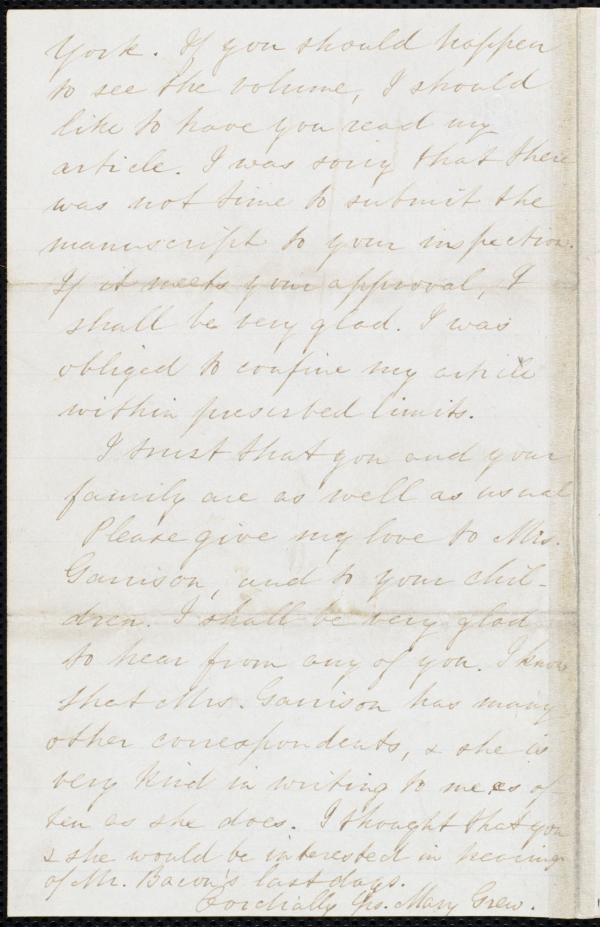 York. If you should happen
to see the volume, I should
like to have you read my
article. I was sorry that there
was not time to submit the
manuscript to your inspection.
If it meets your approval, I
shall be very glad. I was
obliged to confine my article
within prescribed limits.
I trust that you and your
family are as well as usual
Please give my love to Mrs.
Garrison, and to your chil-
dren. I shall be very glad
to hear from any of you. I know
that Mrs. Garrison has many
other correspondents, & she is
very kind in writing to me as of
ten as she does. I thought that you
& she would be interested in hearing
of Mr. Bacon's last days.
Cordially Yrs. Mary Grew.